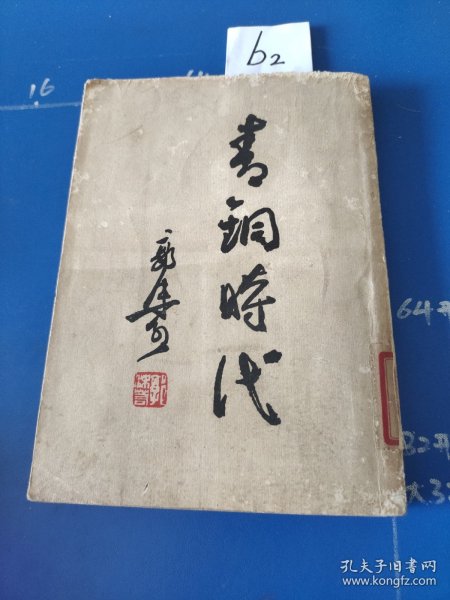 b2
16
64开
青銅時代
郭沫若
32开
大32
孔夫子旧书网
www.kongfz.com